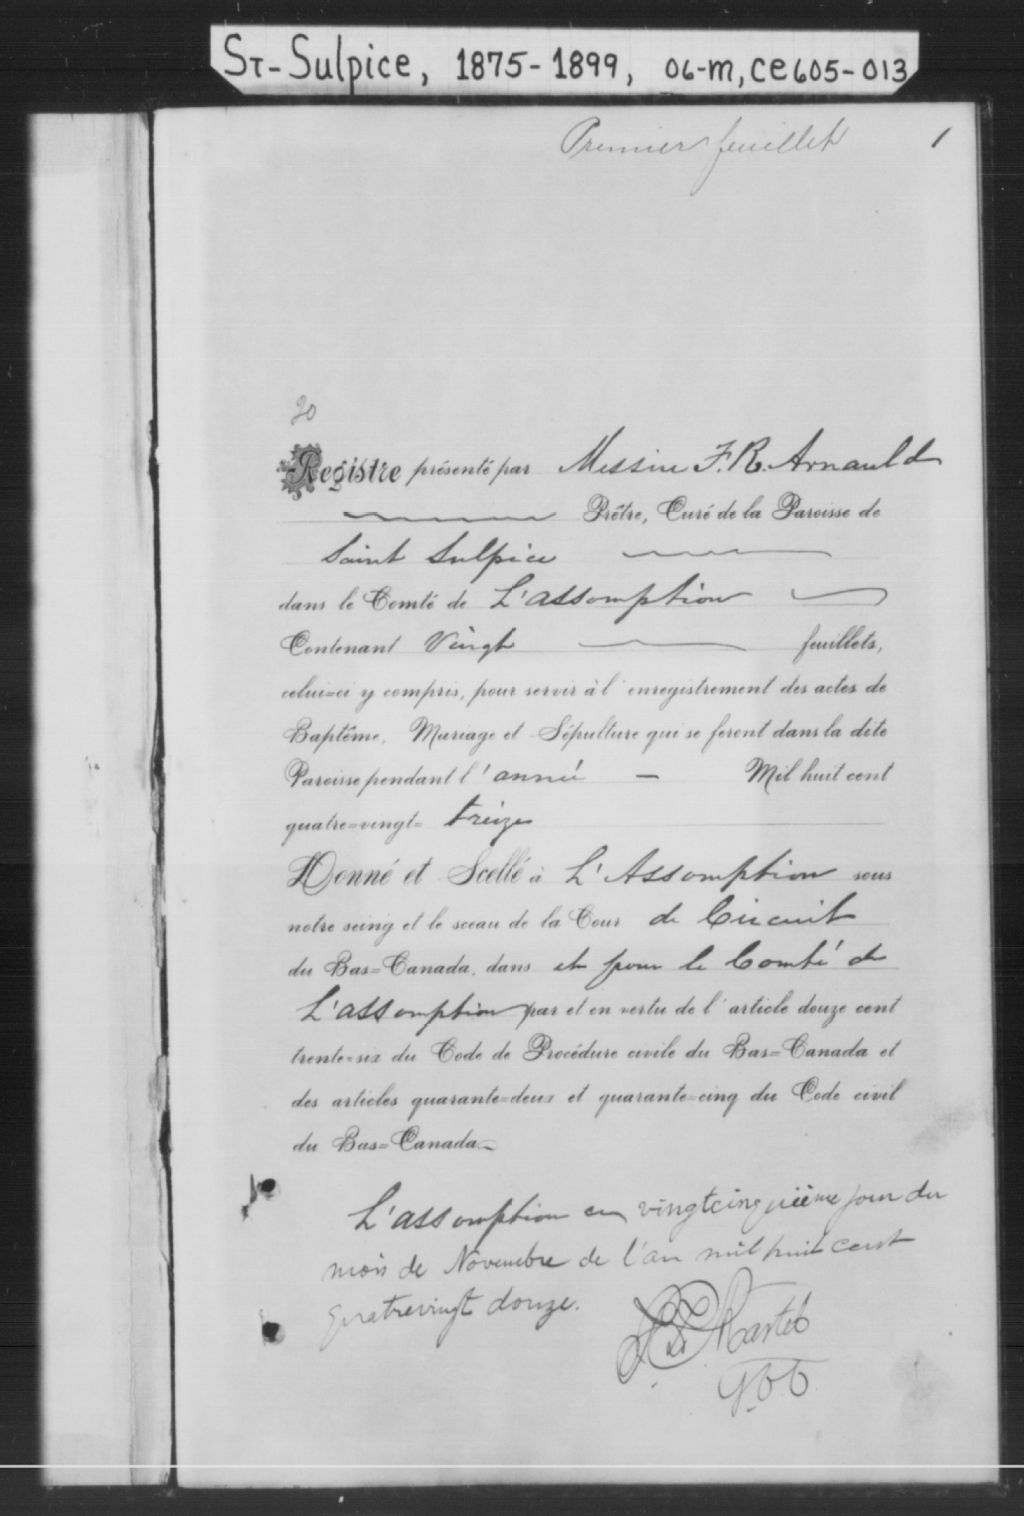 St-Sulpice, 1875-1899, 06-m, ce605-013
Premier feuillet 1
20
Registre présenté par Messire F. R. Arnauld
Prêtre, Curé de la Paroisse de
Saint Sulpice
dans le Comté de L'assomption
Contenant Vingt feuillets,
celui=ci y compris, pour servir à l'enregistrement des actes de
Baptême, Mariage et Sépulture qui se feront dans la dite
Paroisse pendant l'année — Mil huit cent
quatre=vingt= treize
Donné et Scellé à L'Assomption sous
notre seing et le sceau de la Cour de Circuit
du Bas=Canada, dans et pour le Comté de
L'assomption par et en vertu de l'article douze cent
trente=six du Code de Procédure civile du Bas=Canada et
des articles quarante=deux et quarante=cinq du Code civil
du Bas=Canada.—
L'assomption ce vingtcinquième jour du
mois de Novembre de l'an mil huit cent
quatrevingt douze.
Martel